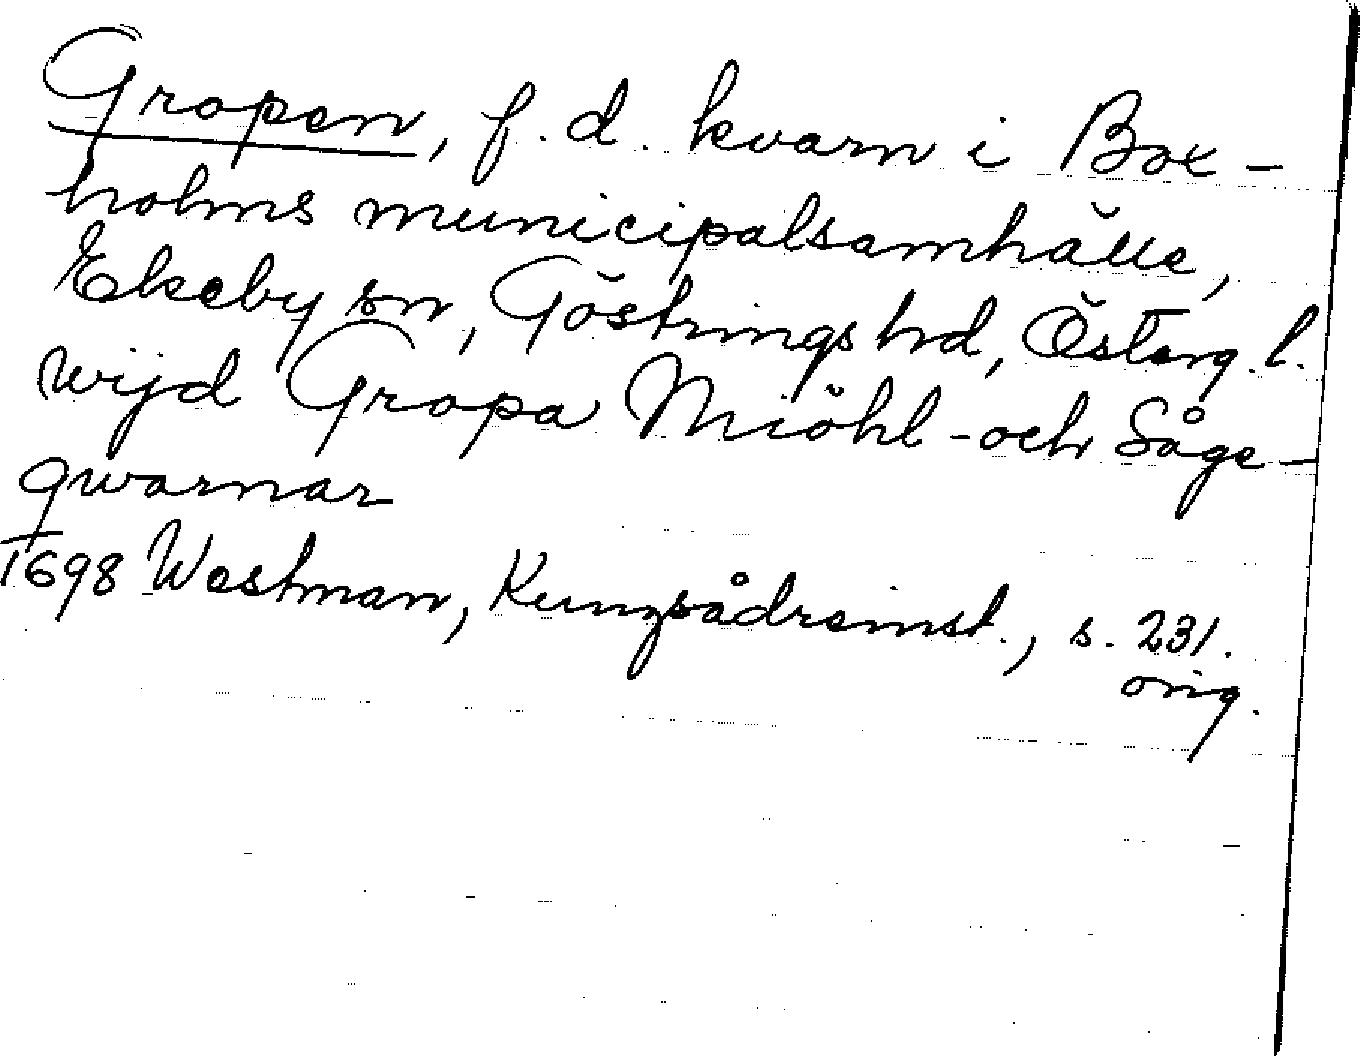 Gropen, f. d. kvarn i Box-
holms municipalsamhälle,
Ekeby sn, Göstrings hd, Österg. l.
wijd Gropa Miöhl- och Såge-
qwarnar
1698 Westman, Kungsådreinst., s. 231.
orig.